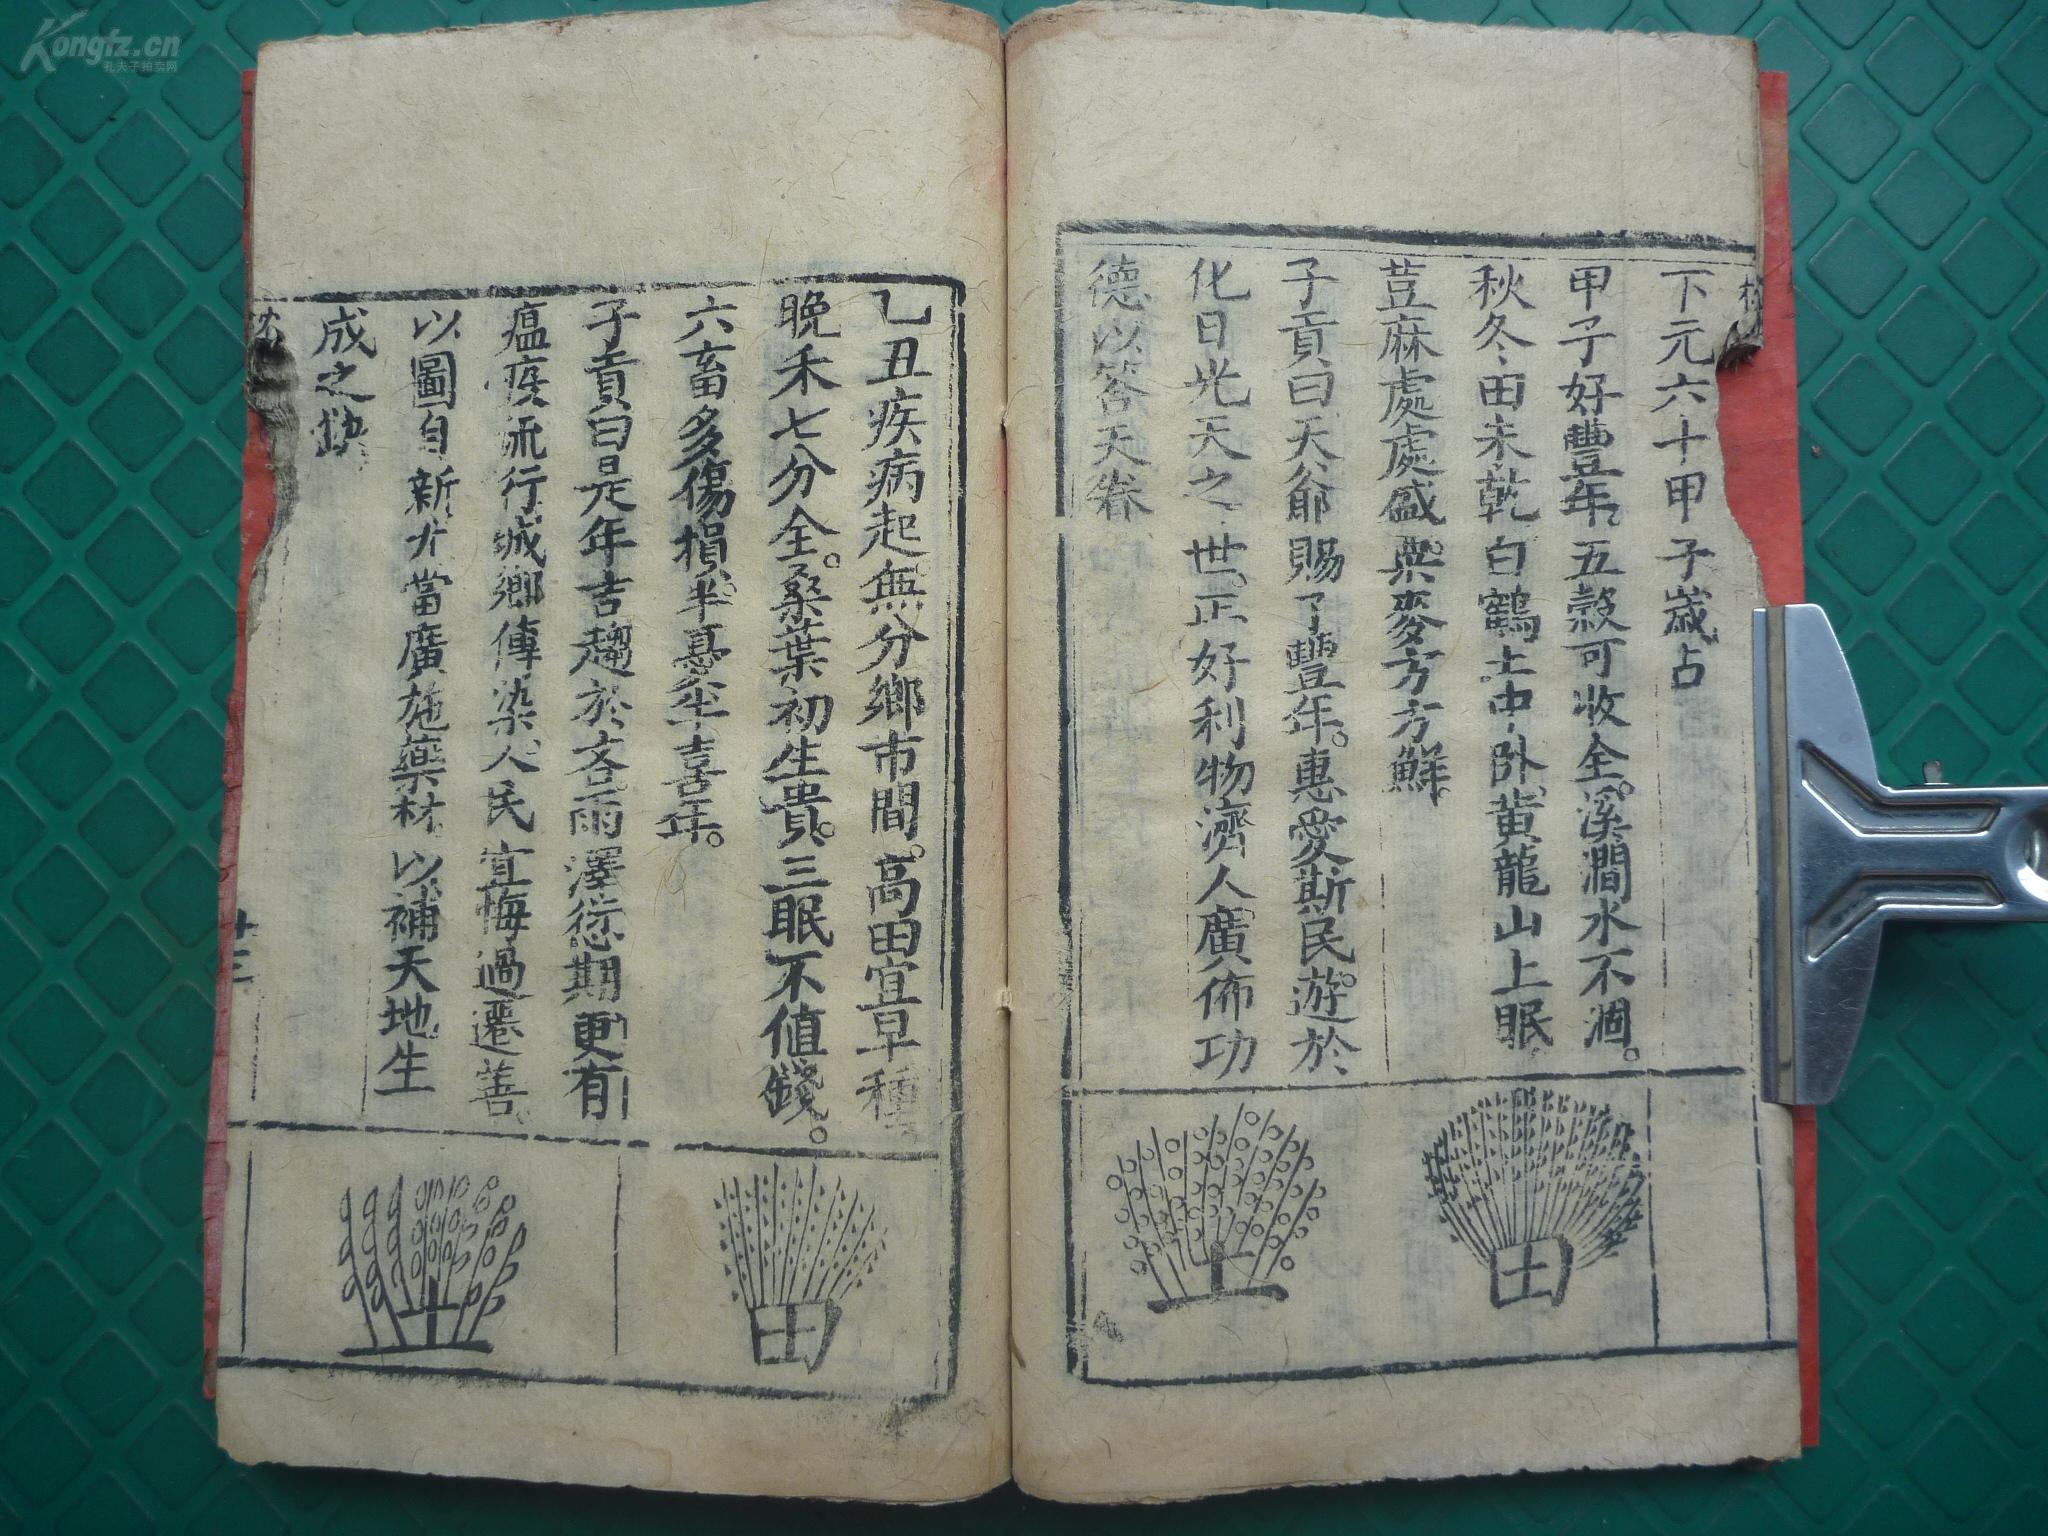 下元六十甲子歲占
甲子好豐年五穀可收全。溪澗水不涸。
秋冬田未乾白鶴土中卧黄龍山上眠
荳麻處處盛粟麥方方鮮。
子貢曰天爺賜了豐年。惠愛斯民。遊於
化日光天之世。正好利物濟人廣佈功
德以答天眷
乙丑疾病起無分鄉市間。高田宜早種
晚禾七分全。桑葉初生貴。三眠不值錢。
六畜多傷損半憂半喜年。
子貢曰是年吉趨於吝雨澤愆期更有
瘟疫流行城鄉傳染人民宜悔過遷善
以圖自新才當廣施藥材以補天地生
成之缺
十三
田
土
田
土
Kongfz.cn
孔夫子拍卖网